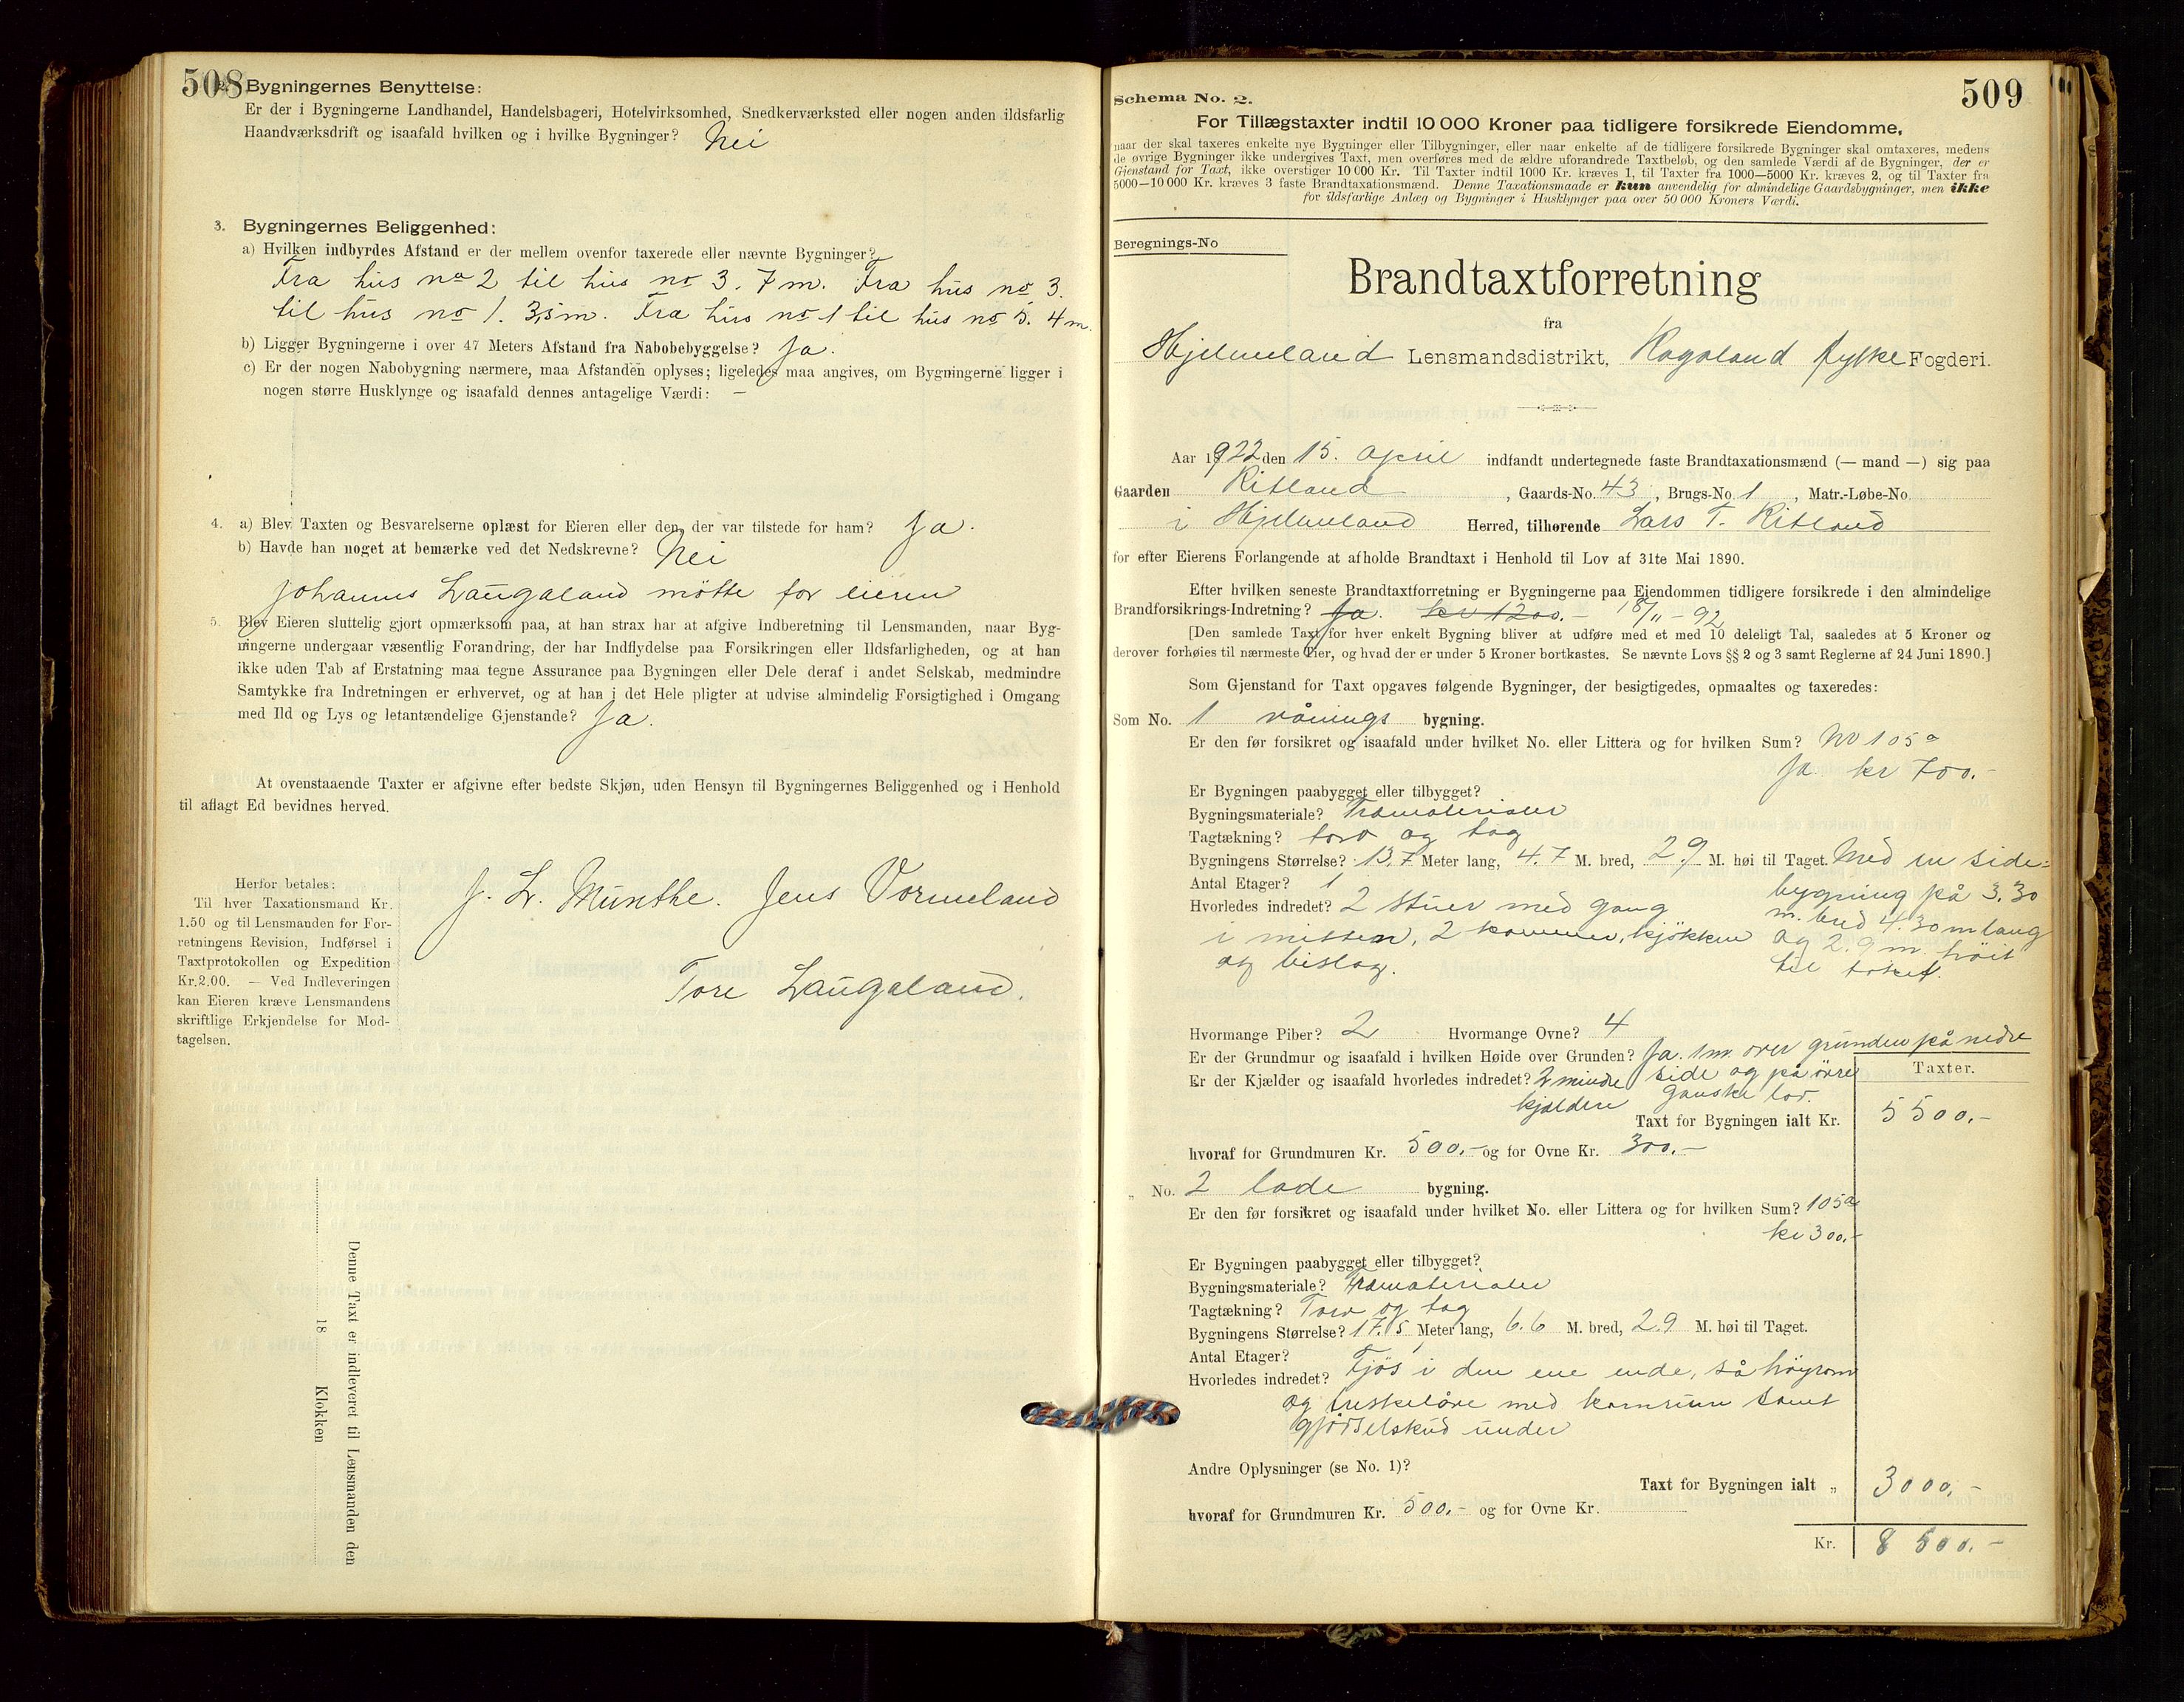 508
2. Bygningernes Benyttelse:
Er der i Bygningerne Landhandel, Handelsbageri, Hotelvirksomhed, Snedkerværksted eller nogen anden ildsfarlig
Haandværksdrift og isaafald hvilken og i hvilke Bygninger? Nei
3. Bygningernes Beliggenhed:
a) Hvilken indbyrdes Afstand er der mellem ovenfor taxerede eller nævnte Bygninger?
Fra hus no 2 til hus no 3. 7 m. Fra hus no 3.
til hus no 1. 3,5 m. Fra hus no 1 til hus no 5. 4 m.
b) Ligger Bygningerne i over 47 Meters Afstand fra Nabobebyggelse? Ja.
c) Er der nogen Nabobygning nærmere, maa Afstanden oplyses; ligeledes maa angives, om Bygningerne ligger i
nogen større Husklynge og isaafald dennes antagelige Værdi: —
4. a) Blev Taxten og Besvarelserne oplæst for Eieren eller den, der var tilstede for ham? Ja.
b) Havde han noget at bemærke ved det Nedskrevne? Nei
Johannes Laugaland mötte for eieren
5. Blev Eieren sluttelig gjort opmærksom paa, at han strax har at afgive Indberetning til Lensmanden, naar Byg-
ningerne undergaar væsentlig Forandring, der har Indflydelse paa Forsikringen eller Ildsfarligheden, og at han
ikke uden Tab af Erstatning maa tegne Assurance paa Bygningen eller Dele deraf i andet Selskab, medmindre
Samtykke fra Indretningen er erhvervet, og at han i det Hele pligter at udvise almindelig Forsigtighed i Omgang
med Ild og Lys og letantændelige Gjenstande? Ja.
At ovenstaaende Taxter er afgivne efter bedste Skjøn, uden Hensyn til Bygningernes Beliggenhed og i Henhold
til aflagt Ed bevidnes herved.
J. L. Munthe. Jens Vormeland
Tore Laugaland.
Herfor betales:
Til hver Taxationsmand Kr.
1.50 og til Lensmanden for For-
retningens Revision, Indførsel i
Taxtprotokollen og Expedition
Kr. 2.00. — Ved Indleveringen
kan Eieren kræve Lensmandens
skriftlige Erkjendelse for Mod-
tagelsen.
Denne Taxt er indleveret til Lensmanden den
18 Klokken
509
Schema No. 2.
For Tillægstaxter indtil 10 000 Kroner paa tidligere forsikrede Eiendomme,
naar der skal taxeres enkelte nye Bygninger eller Tilbygninger, eller naar enkelte af de tidligere forsikrede Bygninger skal omtaxeres, medens
de øvrige Bygninger ikke undergives Taxt, men overføres med de ældre uforandrede Taxtbeløb, og den samlede Værdi af de Bygninger, der er
Gjenstand for Taxt, ikke overstiger 10 000 Kr. Til Taxter indtil 1000 Kr. kræves 1, til Taxter fra 1000—5000 Kr. kræves 2, og til Taxter fra
5000—10 000 Kr. kræves 3 faste Brandtaxationsmænd. Denne Taxationsmaade er kun anvendelig for almindelige Gaardsbygninger, men ikke
for ildsfarlige Anlæg og Bygninger i Husklynger paa over 50 000 Kroners Værdi.
Beregnings-No
Brandtaxtforretning
fra
Hjelmeland Lensmandsdistrikt, Rogaland fylke Fogderi.
Aar 1922 den 15. April indfandt undertegnede faste Brandtaxationsmænd (— mand —) sig paa
Gaarden Ritland, Gaards-No. 43, Brugs-No. 1, Matr.-Løbe-No.
i Hjelmeland Herred, tilhørende Lars T. Ritland
for efter Eierens Forlangende at afholde Brandtaxt i Henhold til Lov af 31te Mai 1890.
Efter hvilken seneste Brandtaxtforretning er Bygningerne paa Eiendommen tidligere forsikrede i den almindelige
Brandforsikrings-Indretning? Ja. kr 1200.- 18/11 - 92
[Den samlede Taxt for hver enkelt Bygning bliver at udføre med et med 10 deleligt Tal, saaledes at 5 Kroner og
derover forhøies til nærmeste Tier, og hvad der er under 5 Kroner bortkastes. Se nævnte Lovs §§ 2 og 3 samt Reglerne af 24 Juni 1890.]
Som Gjenstand for Taxt opgaves følgende Bygninger, der besigtigedes, opmaaltes og taxeredes:
Som No. 1 vånings bygning.
Er den før forsikret og isaafald under hvilket No. eller Littera og for hvilken Sum? No 105 a
Ja. kr 700.-
Er Bygningen paabygget eller tilbygget?
Bygningsmateriale? Træmaterialer
Tagtækning? torv og tag
Bygningens Størrelse? 13.7 Meter lang, 4.7 M. bred, 2.9 M. høi til Taget. Med en side-
bygning på 3.30
m. bred 4.30 m lang
og 2.9 m. höit
til taket.
Antal Etager? 1
Hvorledes indredet? 2 stuer med gang
i mitten, 2 kammer, kjökken
og bislag.
Hvormange Piber? 2 Hvormange Ovne? 4
Er der Grundmur og isaafald i hvilken Høide over Grunden? Ja. 1 m. over grunden på nedre
side og på övre
ganske lav.
Er der Kjælder og isaafald hvorledes indredet? 2 mindre
kjeldere
Taxter.
Taxt for Bygningen ialt Kr. 5500.-
hvoraf for Grundmuren Kr. 500.- og for Ovne Kr. 300.-
„ No. 2 lade bygning.
Er den før forsikret og isaafald under hvilket No. eller Littera og for hvilken Sum? 105 a
kr 300.-
Er Bygningen paabygget eller tilbygget?
Bygningsmateriale? Træmaterialer
Tagtækning? Torv og tag
Bygningens Størrelse? 17.5 Meter lang, 6.6 M. bred, 2.9 M. høi til Taget.
Antal Etager? 1
Hvorledes indredet? Fjös i den ene ende, så höyrom
og treskelåve med kornrum samt
gjödselskud under
Andre Oplysninger (se No. 1)?
Taxt for Bygningen ialt „ 3000.-
hvoraf for Grundmuren Kr. 500.- og for Ovne Kr.
Kr. 8 500.-